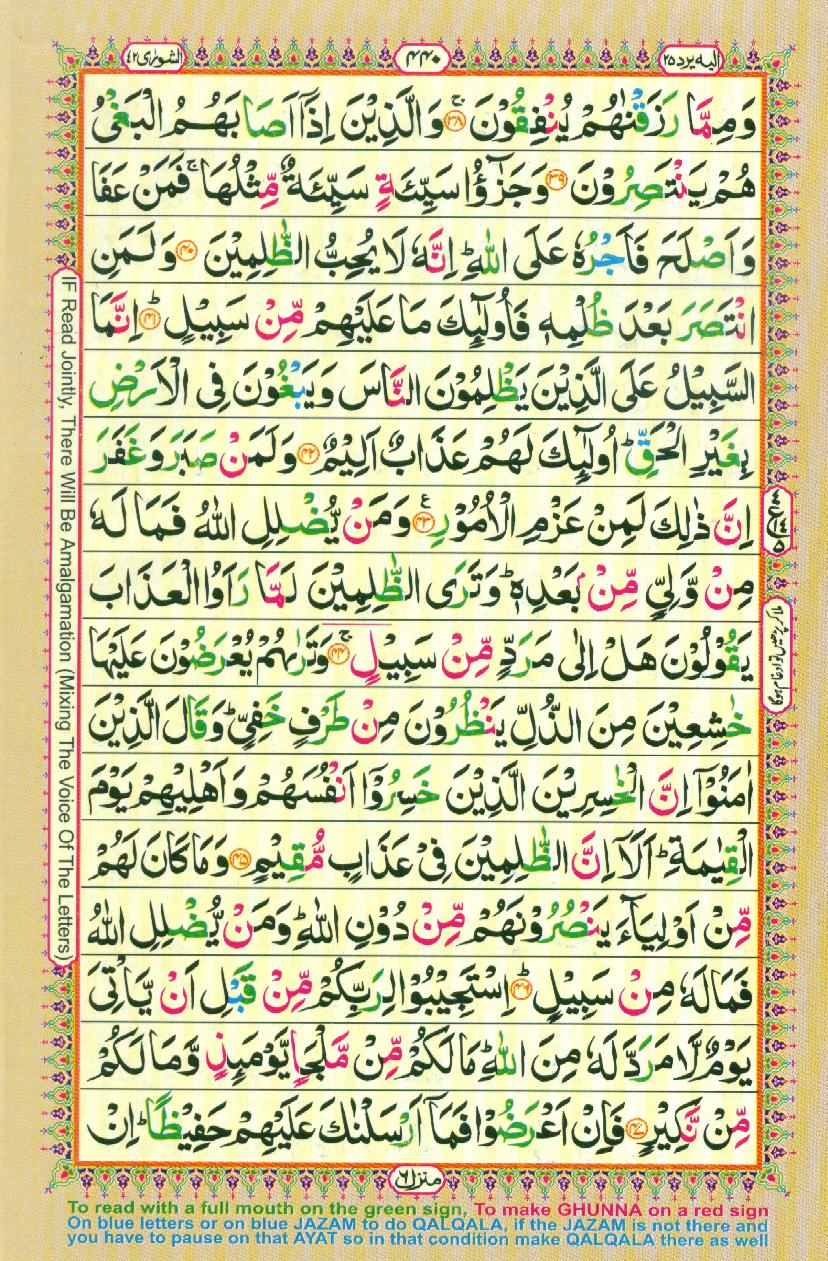 الشورٰی ۴۲
۴۴۰
الیه یرد ۲۵
وَمِمَّا رَزَقْنٰهُمْ يُنْفِقُوْنَ ۚ۳۸ وَالَّذِيْنَ اِذَآ اَصَابَهُمُ الْبَغْىُ
هُمْ يَنْتَصِرُوْنَ ۳۹ وَجَزٰٓؤُا سَيِّئَةٍ سَيِّئَةٌ مِّثْلُهَا ۚ فَمَنْ عَفَا
وَاَصْلَحَ فَاَجْرُهٗ عَلَى اللّٰهِ ؕ اِنَّهٗ لَا يُحِبُّ الظّٰلِمِيْنَ ۴۰ وَلَمَنِ
انْتَصَرَ بَعْدَ ظُلْمِهٖ فَاُولٰٓئِكَ مَا عَلَيْهِمْ مِّنْ سَبِيْلٍ ؕ۴۱ اِنَّمَا
السَّبِيْلُ عَلَى الَّذِيْنَ يَظْلِمُوْنَ النَّاسَ وَيَبْغُوْنَ فِى الْاَرْضِ
بِغَيْرِ الْحَقِّ ؕ اُولٰٓئِكَ لَهُمْ عَذَابٌ اَلِيْمٌ ۴۲ وَلَمَنْ صَبَرَ وَغَفَرَ
اِنَّ ذٰلِكَ لَمِنْ عَزْمِ الْاُمُوْرِ ۴۳ ع وَمَنْ يُّضْلِلِ اللّٰهُ فَمَا لَهٗ
مِنْ وَّلِىٍّ مِّنْۢ بَعْدِهٖ ؕ وَتَرَى الظّٰلِمِيْنَ لَمَّا رَاَوُا الْعَذَابَ
يَقُوْلُوْنَ هَلْ اِلٰى مَرَدٍّ مِّنْ سَبِيْلٍ ۚ۴۴ وَتَرٰىهُمْ يُعْرَضُوْنَ عَلَيْهَا
خٰشِعِيْنَ مِنَ الذُّلِّ يَنْظُرُوْنَ مِنْ طَرْفٍ خَفِىٍّ ؕ وَقَالَ الَّذِيْنَ
اٰمَنُوْٓا اِنَّ الْخٰسِرِيْنَ الَّذِيْنَ خَسِرُوْٓا اَنْفُسَهُمْ وَاَهْلِيْهِمْ يَوْمَ
الْقِيٰمَةِ ؕ اَلَآ اِنَّ الظّٰلِمِيْنَ فِىْ عَذَابٍ مُّقِيْمٍ ۴۵ وَمَا كَانَ لَهُمْ
مِّنْ اَوْلِيَآءَ يَنْصُرُوْنَهُمْ مِّنْ دُوْنِ اللّٰهِ ؕ وَمَنْ يُّضْلِلِ اللّٰهُ
فَمَا لَهٗ مِنْ سَبِيْلٍ ؕ۴۶ اِسْتَجِيْبُوْا لِرَبِّكُمْ مِّنْ قَبْلِ اَنْ يَّاْتِىَ
يَوْمٌ لَّا مَرَدَّ لَهٗ مِنَ اللّٰهِ ؕ مَا لَكُمْ مِّنْ مَّلْجَاٍ يَّوْمَئِذٍ وَّمَا لَكُمْ
مِّنْ نَّكِيْرٍ ۴۷ فَاِنْ اَعْرَضُوْا فَمَآ اَرْسَلْنٰكَ عَلَيْهِمْ حَفِيْظًا ؕ اِنْ
منزل ۶
IF Read Jointly, There Will Be Amalgamation (Mixing The Voice Of The Letters)
To read with a full mouth on the green sign, To make GHUNNA on a red sign
On blue letters or on blue JAZAM to do QALQALA, if the JAZAM is not there and
you have to pause on that AYAT so in that condition make QALQALA there as well